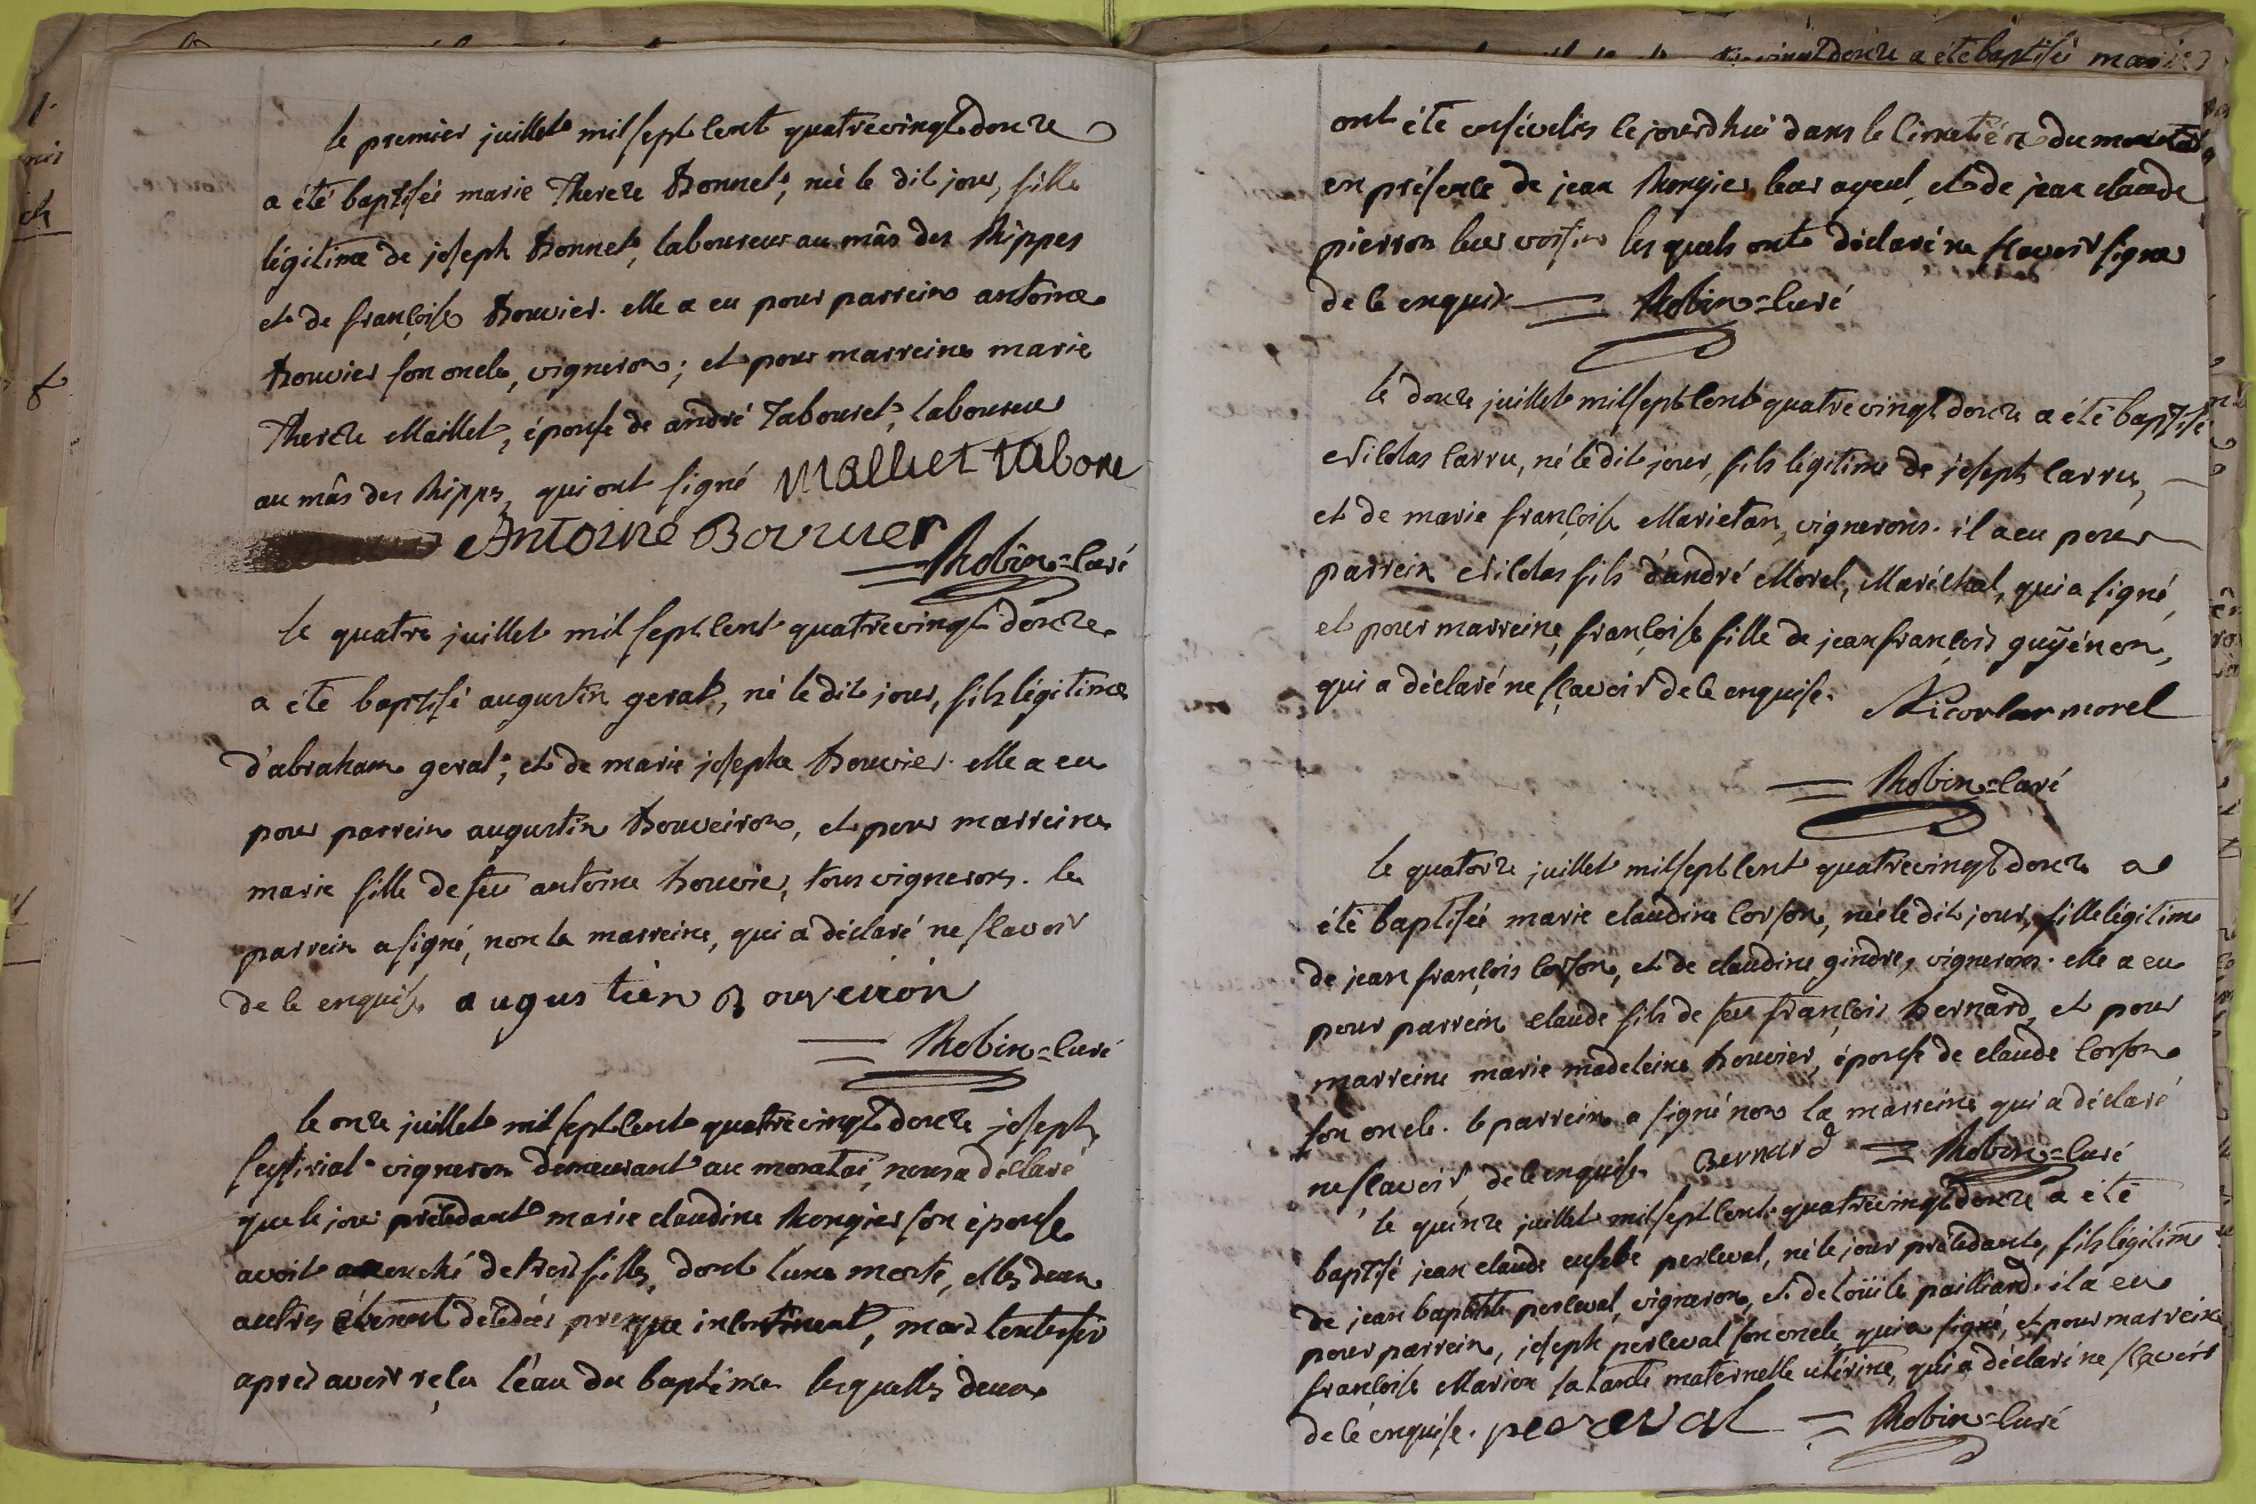 le premier juillet mil sept cent quatrevingt douze
a été baptisée marie Thereze Bonnet, née le dit jour, fille
légitime de joseph Bonnet, laboureur au mâs des Rippes
et de françoise Bouvier. elle a eu pour parrein antoine
Bouvier son oncle, vigneron; et pour marreine marie
Thereze Maillet, épouse de andré Tabouret, laboureur
au mâs des Rippes, qui ont signé Malliet tabore
Antoine Bouvier
Robin=curé
le quatre juillet mil sept cent quatrevingt douze
a été baptisé augustin gerat, né le dit jour, fils légitime
d'abraham gerat, et de marie josephe Bouvier. elle a eu
pour parrein augustin Bouveiron, et pour marreine
marie fille de feu antoine bouvier, tous vignerons. le
parrein a signé, non la marreine, qui a déclaré ne scavoir
de ce enquise augustien Bouveiron
Robin=curé
le onze juillet mil sept cent quatrevingt douze joseph
vigneron demeurant au monataï, nous a déclaré
que le jour précédant marie claudine Rongier son épouse
avoit accouché de trois filles, dont l'une morte, et les deux
autres étenont décédées presque incontinent, mais
après avoir reçu l'eau du baptême lesquelles deux
ont été ensévelies ce jourdhui dans le cimetière du
en présence de jean Rongier leur ayeul, et de jean claude
pierron leur voisin lesquels ont déclaré ne scavoir signer
de ce enquis Robin=curé
le douze juillet mil sept cent quatrevingt douze a été baptisé
Nicolas Carru, né le dit jour, fils légitime de joseph Carru,
et de marie françoise Marietan, vignerons. il a eu pour
parrein Nicolas fils d'andré Morel, Maréchal, qui a signé,
et pour marreine, françoise fille de jean françois guÿénon,
qui a déclaré ne sçavoir de ce enquise. Nicorlar morel
Robin=curé
le quatorze juillet mil sept cent quatrevingt douze a
été baptisée marie claudine Corson, née le dit jour, fille légitime
de jean françois Corson, et de claudine gindre, vignerons. elle a eu
pour parrein claude fils de feu françois bernard, et pour
marreine marie madeleine bouvier, épouse de claude Corson
son oncle. le parrein a signé non la marreine qui a déclaré
ne scavoir de ce enquise Bernard Robin=curé
le quinze juillet mil sept cent quatrevingt douze a été
baptisé jean claude eusebe perceval, né le jour précédant, fils légitime
de jean baptiste perceval, vigneron, et de loüise pailliard. il a eu
pour parrein, joseph perceval son oncle, qui a signé, et pour marreine
françoise Marion sa tante maternelle utérine, qui a déclaré ne sçavoir
de ce enquise. perceval Robin=curé